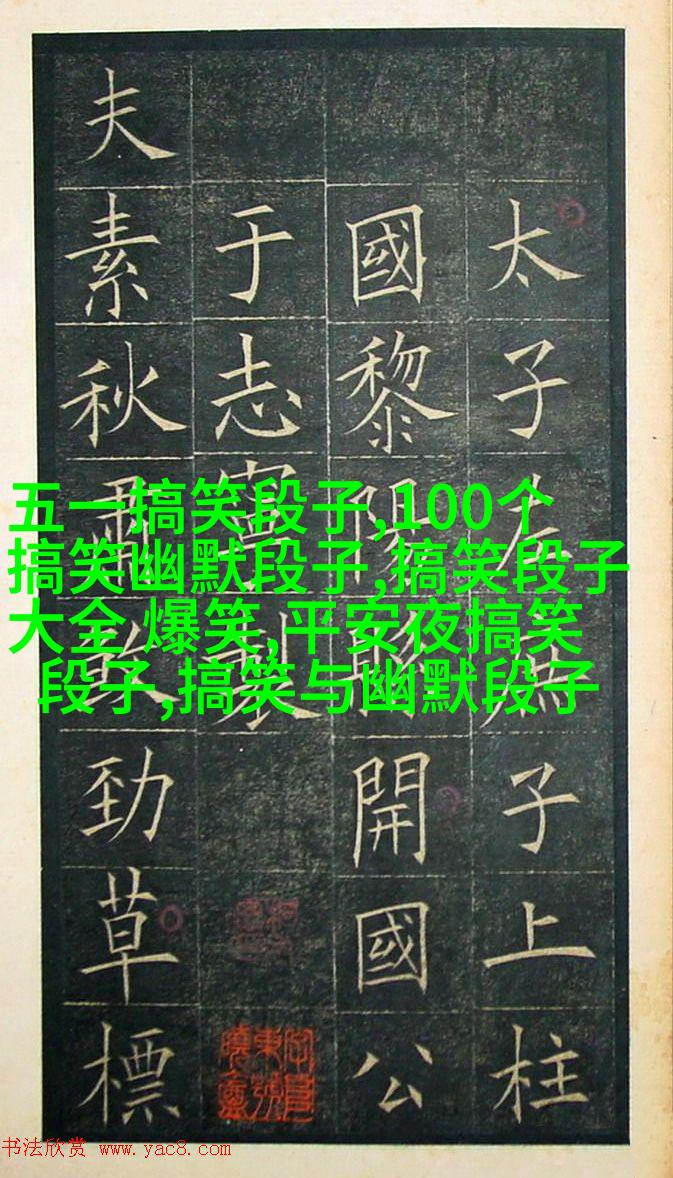 太子左庶子上柱
國黎陽開國公
于志寧製
夫素秋肅勁草標
五一搞笑段子,100个
搞笑幽默段子,搞笑段子
大全 爆笑,平安夜搞笑
段子,搞笑与幽默段子
书法欣赏 www.yac8.com